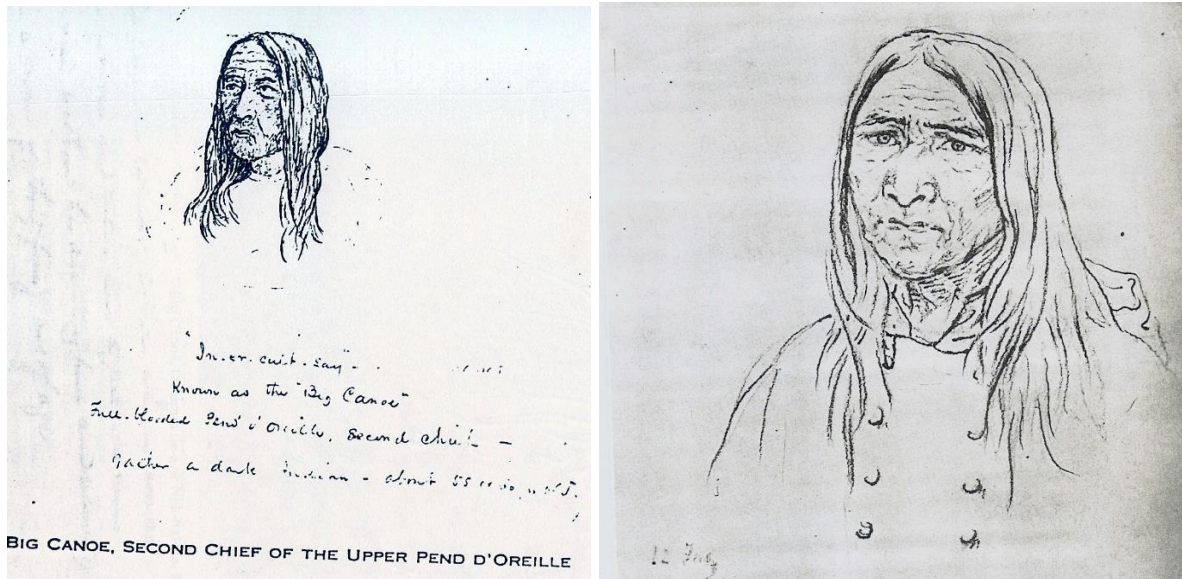 "In-er-cuit-say" -
Known as the "Big Canoe"
Full-blooded Pend d'Oreille, Second chief -
a dark Indian - about 55
BIG CANOE, SECOND CHIEF OF THE UPPER PEND D'OREILLE
12